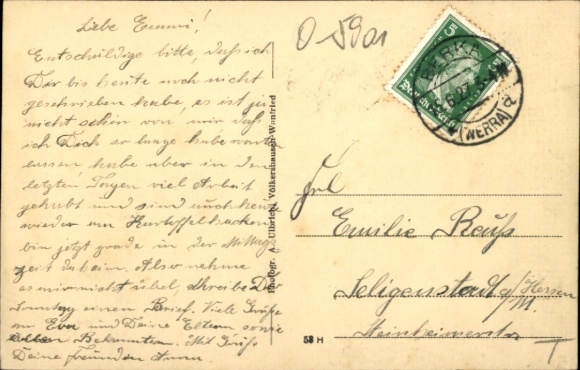 Liebe Emmi!
Entschuldige bitte, daß ich
Dir bis heute noch nicht
geschrieben habe, es ist ja
nicht schön von mir daß
ich Dich so lange habe warten
lassen habe aber in den
letzten Tagen viel Arbeit
gehabt und sind auch heute
wieder am Kartoffelhacken
bin jetzt grade in der Mittags-
zeit daheim. Also nehme
es mir nicht übel, schreibe Dir
Sonntag einen Brief. Viele Grüße
an Eva und Deine Eltern sowie
allen Bekannten. Mit Gruß
Deine Freundin Anna
Photogr. A. Ulbricht, Völkershausen-Wanfried
0 5901
5
BERKA
6.27
(WERRA)
Frl
Emilie Reuß
Seligenstadt a/M.
Hessen
Steinheimerstr
53 H